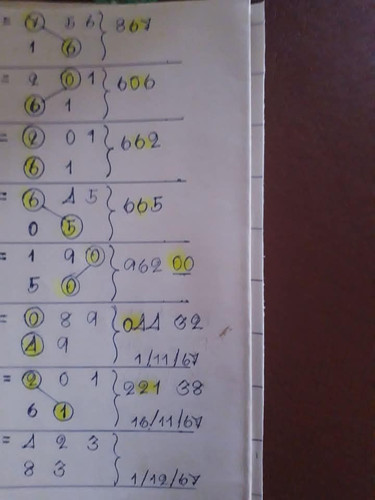 = 7 5 6 } 867
1 6
= 2 0 1 } 606
6 1
= 2 0 1 } 662
6 1
= 6 1 5 } 665
0 5
= 1 9 0 } 962 00
5 0
= 0 8 9 } 011 32
1 9 1/11/67
= 2 0 1 } 221 38
6 1 16/11/67
= 1 2 3 }
8 3 1/12/67